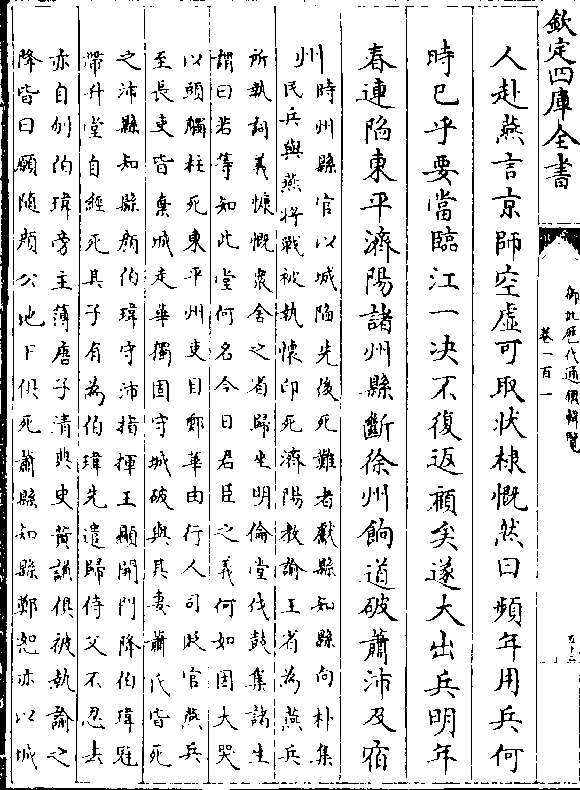 欽定四庫全書
御批歷代通鑑輯覽
卷一百一
人赴燕言京師空虛可取狀棣慨然曰頻年用兵何
時已乎要當臨江一決不復返顧矣遂大出兵明年
春連陷東平濟陽諸州縣斷徐州餉道破蕭沛及宿
州
時州縣官以城陷先後死難者獻縣知縣向朴集
民兵與燕將戰被執懷印死濟陽教諭王省為燕兵
所執詞義慷慨衆舍之省歸坐明倫堂伐鼓集諸生
謂曰若等知此堂何名今日君臣之義何如因大哭
以頭觸柱死東平州吏目鄭華由行人司貶官燕兵
至長吏皆棄城走華獨固守城破與其妻蕭氏皆死
之沛縣知縣顏伯瑋守沛指揮王顯開門降伯瑋冠
帶升堂自經死其子有為伯瑋先遣歸侍父不忍去
亦自刎伯瑋旁主薄唐子清典史黃謙俱被執諭之
降皆曰願隨顏公地下俱死蕭縣知縣鄭恕亦以城